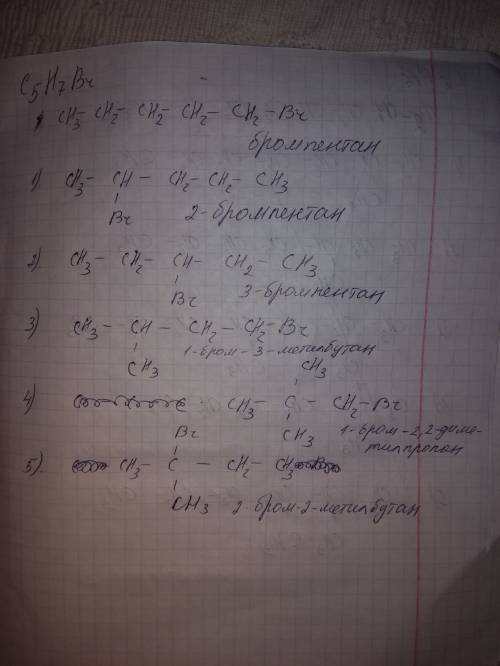 C5H7Br
CH3 - CH2 - CH2 - CH2 - CH2 - Br
бромпентан
1) CH3 - CH - CH2 - CH2 - CH3
Br 2-бромпентан
2) CH3 - CH2 - CH - CH2 - CH3
Br 3-бромпентан
3) CH3 - CH - CH2 - CH2 - Br
CH3 1-бром-3-метилбутан
CH3
4) CH3 - C - CH2 - Br
CH3 1-бром-2,2-диме-
тилпропан
Br
5). CH3 - C - CH2 - CH3
CH3 2-бром-2-метилбутан